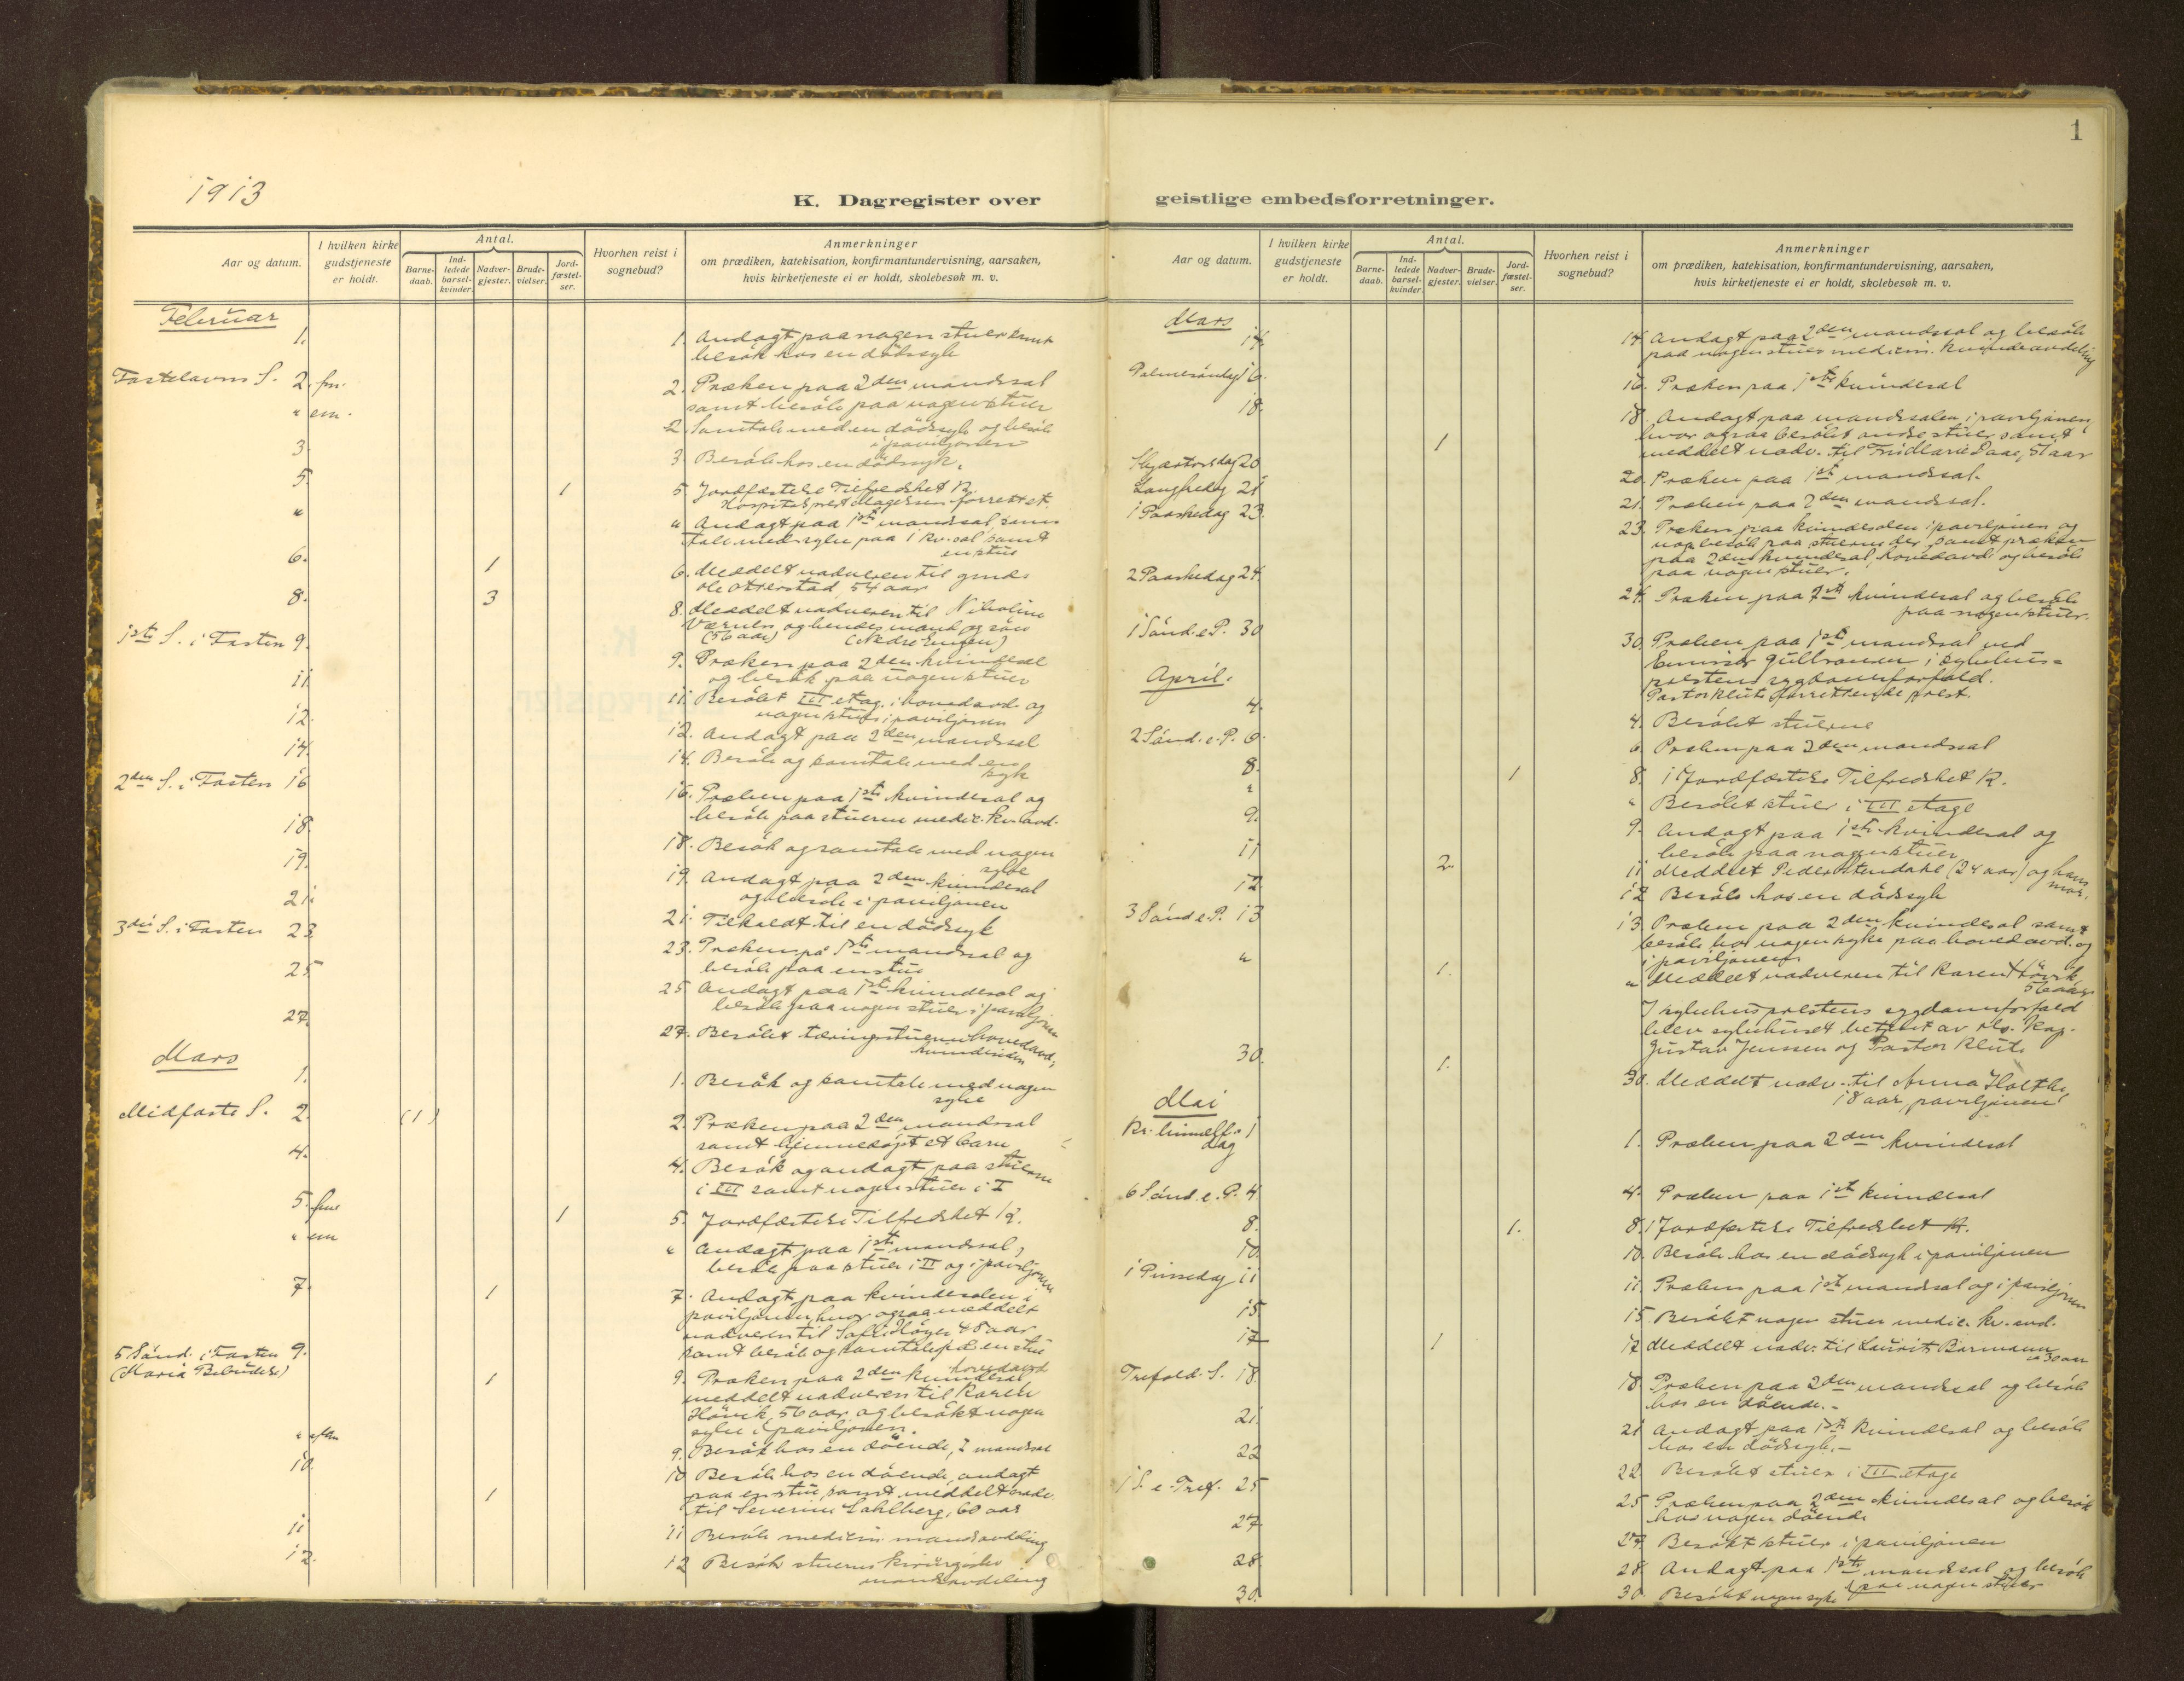 1
1913
K. Dagregister over geistlige embedsforretninger.
Aar og datum.
I hvilken kirke gudstjeneste er holdt.
Antal.
Barne-daab.
Ind-ledede barsel-kvinder.
Nadver-gjester.
Brude-vielser.
Jord-fæstel-ser.
Hvorhen reist i sognebud?
Anmerkninger
om prædiken, katekisation, konfirmantundervisning, aarsaken,
hvis kirketjeneste ei er holdt, skolebesøk m. v.
Februar
1. 1. Andagt paa nogen stuer samt
besøk hos en dödssyk
Fastelavns S. 2. fm. 2. Præken paa 2den mandssal
samt besök paa nogen stuer
" em. 2. Samtale med en dödssyk og besök
i paviljonen
3. 3. Besök hos en dödssyk.
5. 1 5. Jordfæstelse Tilfredshet K.
Hospitalsprest Magelssen forrettet.
" " Andagt paa 1ste mandssal, sam-
tale med syke paa 1 kv. sal samt
en stue
6. 1 6. Meddelt nadveren til
Ole Otterstad, 54 aar
8. 3 8. Meddelt nadveren til Nikoline
Værnes og hendes mand og sön
(56 aar) (Nedre Engen)
1ste S. i Fasten 9. 9. Præken paa 2den kvindesal
og besök paa nogen stuer
11. 11. Besökt III etag. i hovedavd. og
nogen stuer i paviljonen
12. 12. Andagt paa 2den mandssal
14. 14. Besök og samtale med en
syk
2den S. i Fasten 16 16. Præken paa 1ste kvindesal og
besök paa stuerne medic. kv. avd.
18. 18. Besök og samtale med nogen
syke
19. 19. Andagt paa 2den kvindesal
og besök i paviljonen
21. 21. Tilkaldt til en dödssyk
3die S. i Fasten 23 23. Præken på 1ste mandssal og
besök paa en stue
25 25 Andagt paa 1ste kvindesal og
besök paa nogen stuer i paviljonen
27. 27. Besökt tæringsstuerne hovedavd.,
kvindesiden
Mars
1. 1. Besök og samtale med nogen
syke
Midfaste S. 2. (1) 2. Præken paa 2den mandssal
samt hjemmedöpt et barn
4. 4. Besök og andagt paa stuerne
i III samt nogen stuer i I
5. fm 1 5. Jordfæstelse Tilfredshet K.
" em " Andagt paa 1ste mandssal,
besök paa stuer i II og i paviljonen
7. 1 7. Andagt paa kvindesalen i
paviljonen, hvor ogsaa meddelt
nadveren til 48 aar
samt besök og samtale på en stue
5 Sönd. i Fasten 9. 1 9. Præken paa 2den kvindesal hovedavd
(Mariä Bebudelse) meddelt nadveren til Karen
Hövik, 56 aar og besökt nogen
syke i paviljonen.
" 9. Besök hos en döende, 2 mandssal
10. 1 10 Besök hos en döende, andagt
paa en stue, samt meddelt nadv.
til Severin Sahlberg, 60 aar
11 11 Besök medicin. mandsavdeling
12. 12 Besök stuerne kirurgiske
mandsavdeling
Mars
14. 14. Andagt paa 2den mandssal og besök
paa nogen stuer medicin. kvindeavdeling
Palmesöndag 16. 16. Præken paa 1ste kvindesal
18. 1 18. Andagt paa mandssalen i paviljonen,
hvor ogsaa besökt andre stuer samt
meddelt nadv. til Frk Marie Daae, 51 aar
Skjærtorsdag 20 20. Præken paa 1ste mandssal.
Langfredag 21 21. Præken paa 2den mandssal.
1 Paaskedag 23. 23. Præken paa kvindesalen i paviljonen og
besök paa stuerne der, samt præken
paa 2den kvindesal, hovedavd. og besök
paa nogen stuer.
2 Paaskedag 24. 24. Præken paa 1ste kvindesal og besök
paa nogen stuer.
1 Sönd. e. P. 30 30. Præken paa 1ste mandssal ved
Emissær Gulbransen i sykehus-
prestens sygdomsforfald.
Pastor Klute forrettende prest.
April.
4. 4. Besökt stuerne
2 Sönd. e. P. 6. 6. Præken paa 2den mandssal
8. 1 8. 1 Jordfæstelse Tilfredshet K.
" " Besökt stuer i III etage
9. 9. Andagt paa 1ste kvindesal og
besök paa nogen stuer
11 2. 11 Meddelt Peder Stendahl (24 aar) og hans
mor.
12 12 Besök hos en dödssyk
3 Sönd e. P. 13 13. Præken paa 2den kvindesal samt
besök hos nogen syke paa hovedavd. og
i paviljonen
" 1. " Meddelt nadveren til Karen Hövik
56 aar
I sykehusprestens sygdomsforfald
blev sykehuset betjent av res. kap.
Gustav Jenssen og Pastor Klute
30. 1. 30. Meddelt nadv. til Anna Holthe,
18 aar, paviljonen
Mai
Kr. himmelf. 1
dag 1. Præken paa 2den kvindesal
6 Sönd. e. P. 4 4. Præken paa 1ste kvindesal
8. 1. 8. 1 Jordfæstelse Tilfredshet K.
10. 10. Besök hos en dödssyk i paviljonen
1 Pinsedag 11 11. Præken paa 1ste mandssal og i paviljonen
15. 15. Besökt nogen stuer medic. kv. avd.
17 1 17 Meddelt nadv. til Laurits Bormann
30 aar
Trefold. S. 18. 18. Præken paa 2den mandssal og besök
hos en döende.-
21. 21 Andagt paa 1ste kvindesal og besök
hos en dödssyk.-
22 22. Besökt stuer i III etage
1 S. e. Tref. 25 25 Præken paa 2den kvindesal og besök
hos nogen döende
27 27. Besökt stuer i paviljonen
28. 28. Andagt paa 1ste mandssal og besök
paa nogen stuer
30. 30. Besökt nogen syke